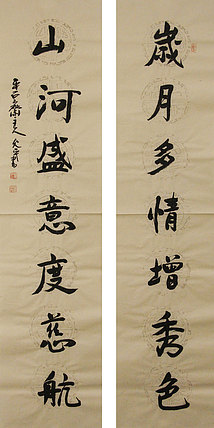 歲月多情增秀色
山河盛意度慈航